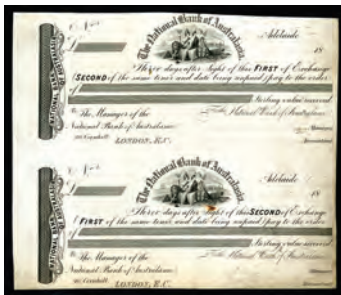 The National Bank of Australasia.
Adelaide
18
Three days after sight of this FIRST of Exchange
(SECOND of the same tenor and date being unpaid) pay to the order
of
Sterling value received
To The Manager of the
National Bank of Australasia
For the National Bank of Australasia
LONDON, E.C.
Manager
Accountant
The National Bank of Australasia.
Adelaide
18
Three days after sight of this SECOND of Exchange
(FIRST of the same tenor and date being unpaid) pay to the order
of
Sterling value received
To The Manager of the
National Bank of Australasia
For the National Bank of Australasia
LONDON, E.C.
Accountant